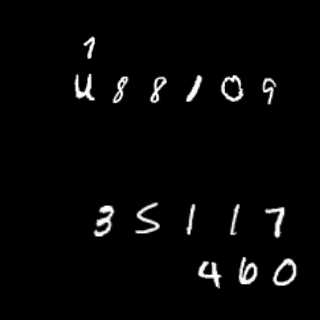 1
488109
35117
460